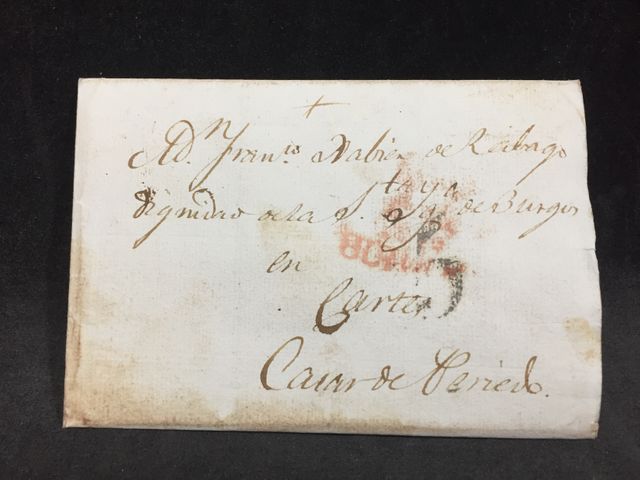 +
A Dn Franco Xabier de Rabago
Dignidad de la Sta Yga de Burgos
en
Cartes
Casar de Periedo.